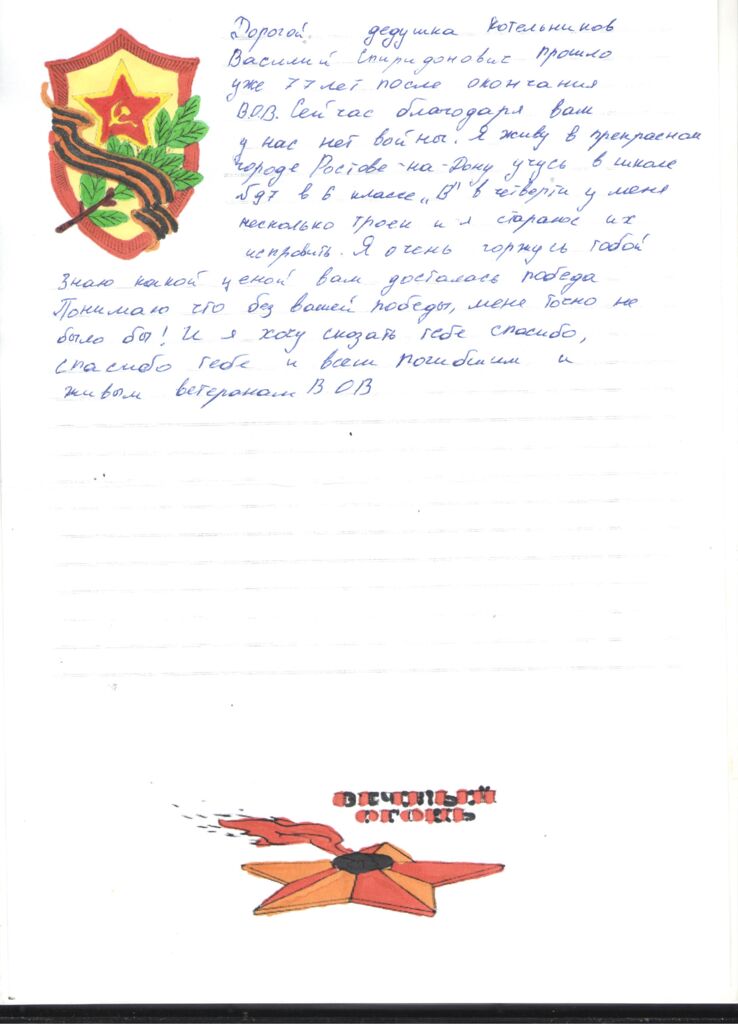 Дорогой дедушка Котельников
Василий Спиридонович прошло
уже 77 лет после окончания
В.О.В. Сейчас благодаря вам
у нас нет войны. Я живу в прекрасном
городе Ростове-на-Дону учусь в школе
№97 в 6 классе „В" в четверти у меня
несколько троек и я стараюс их
исправить. Я очень горжусь тобой
Знаю какой ценой вам досталась победа
Понимаю что без вашей победы, меня точно не
было бы! И я хочу сказать тебе спасибо,
спасибо тебе и всем погибшим и
живым ветеранам В О В
ВЕЧНЫЙ
ОГОНЬ